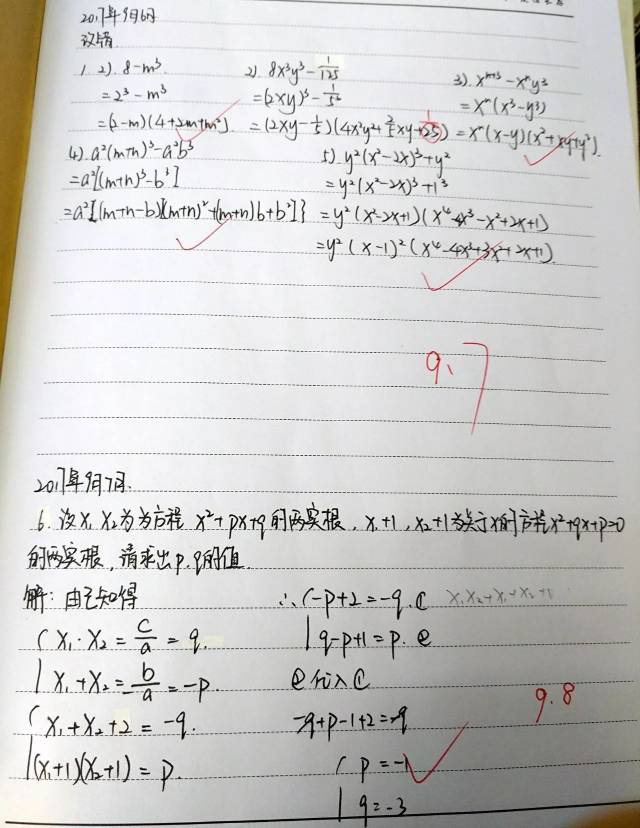 2017年9月6日
改错
1. 2) 8-m³
=2³-m³
=(2-m)(4+2m+m²)
2) 8x³y³-1/125
=(2xy)³-1/5³
=(2xy-1/5)(4x²y²+2/5xy+1/25)
3) xⁿ⁺³-xⁿy³
=xⁿ(x³-y³)
=xⁿ(x-y)(x²+xy+y²)
4) a²(m+n)³-a²b³
=a²[(m+n)³-b³]
=a²{(m+n-b)[(m+n)²+(m+n)b+b²]}
5) y²(x²-2x)³+y²
=y²(x²-2x)³+1³
=y²(x²-2x+1)(x⁴-4x³-x²+2x+1)
=y²(x-1)²(x⁴-4x³+3x²+2x+1)
9.7
2017年9月7日
6. 设x₁ x₂为方程x²+px+q的两实根,x₁+1,x₂+1为关于x的方程x²+qx+p=0
的两实根,请求出p.q的值
解:由已知得
x₁·x₂=c/a=q.
x₁+x₂=-b/a=-p.
x₁+x₂+2=-q.
(x₁+1)(x₂+1)=p.
∴{-p+2=-q.①
q-p+1=p.②
x₁x₂+x₁+x₂+1
②代入①
-q+p-1+2=-q
p=-1
q=-3
9.8